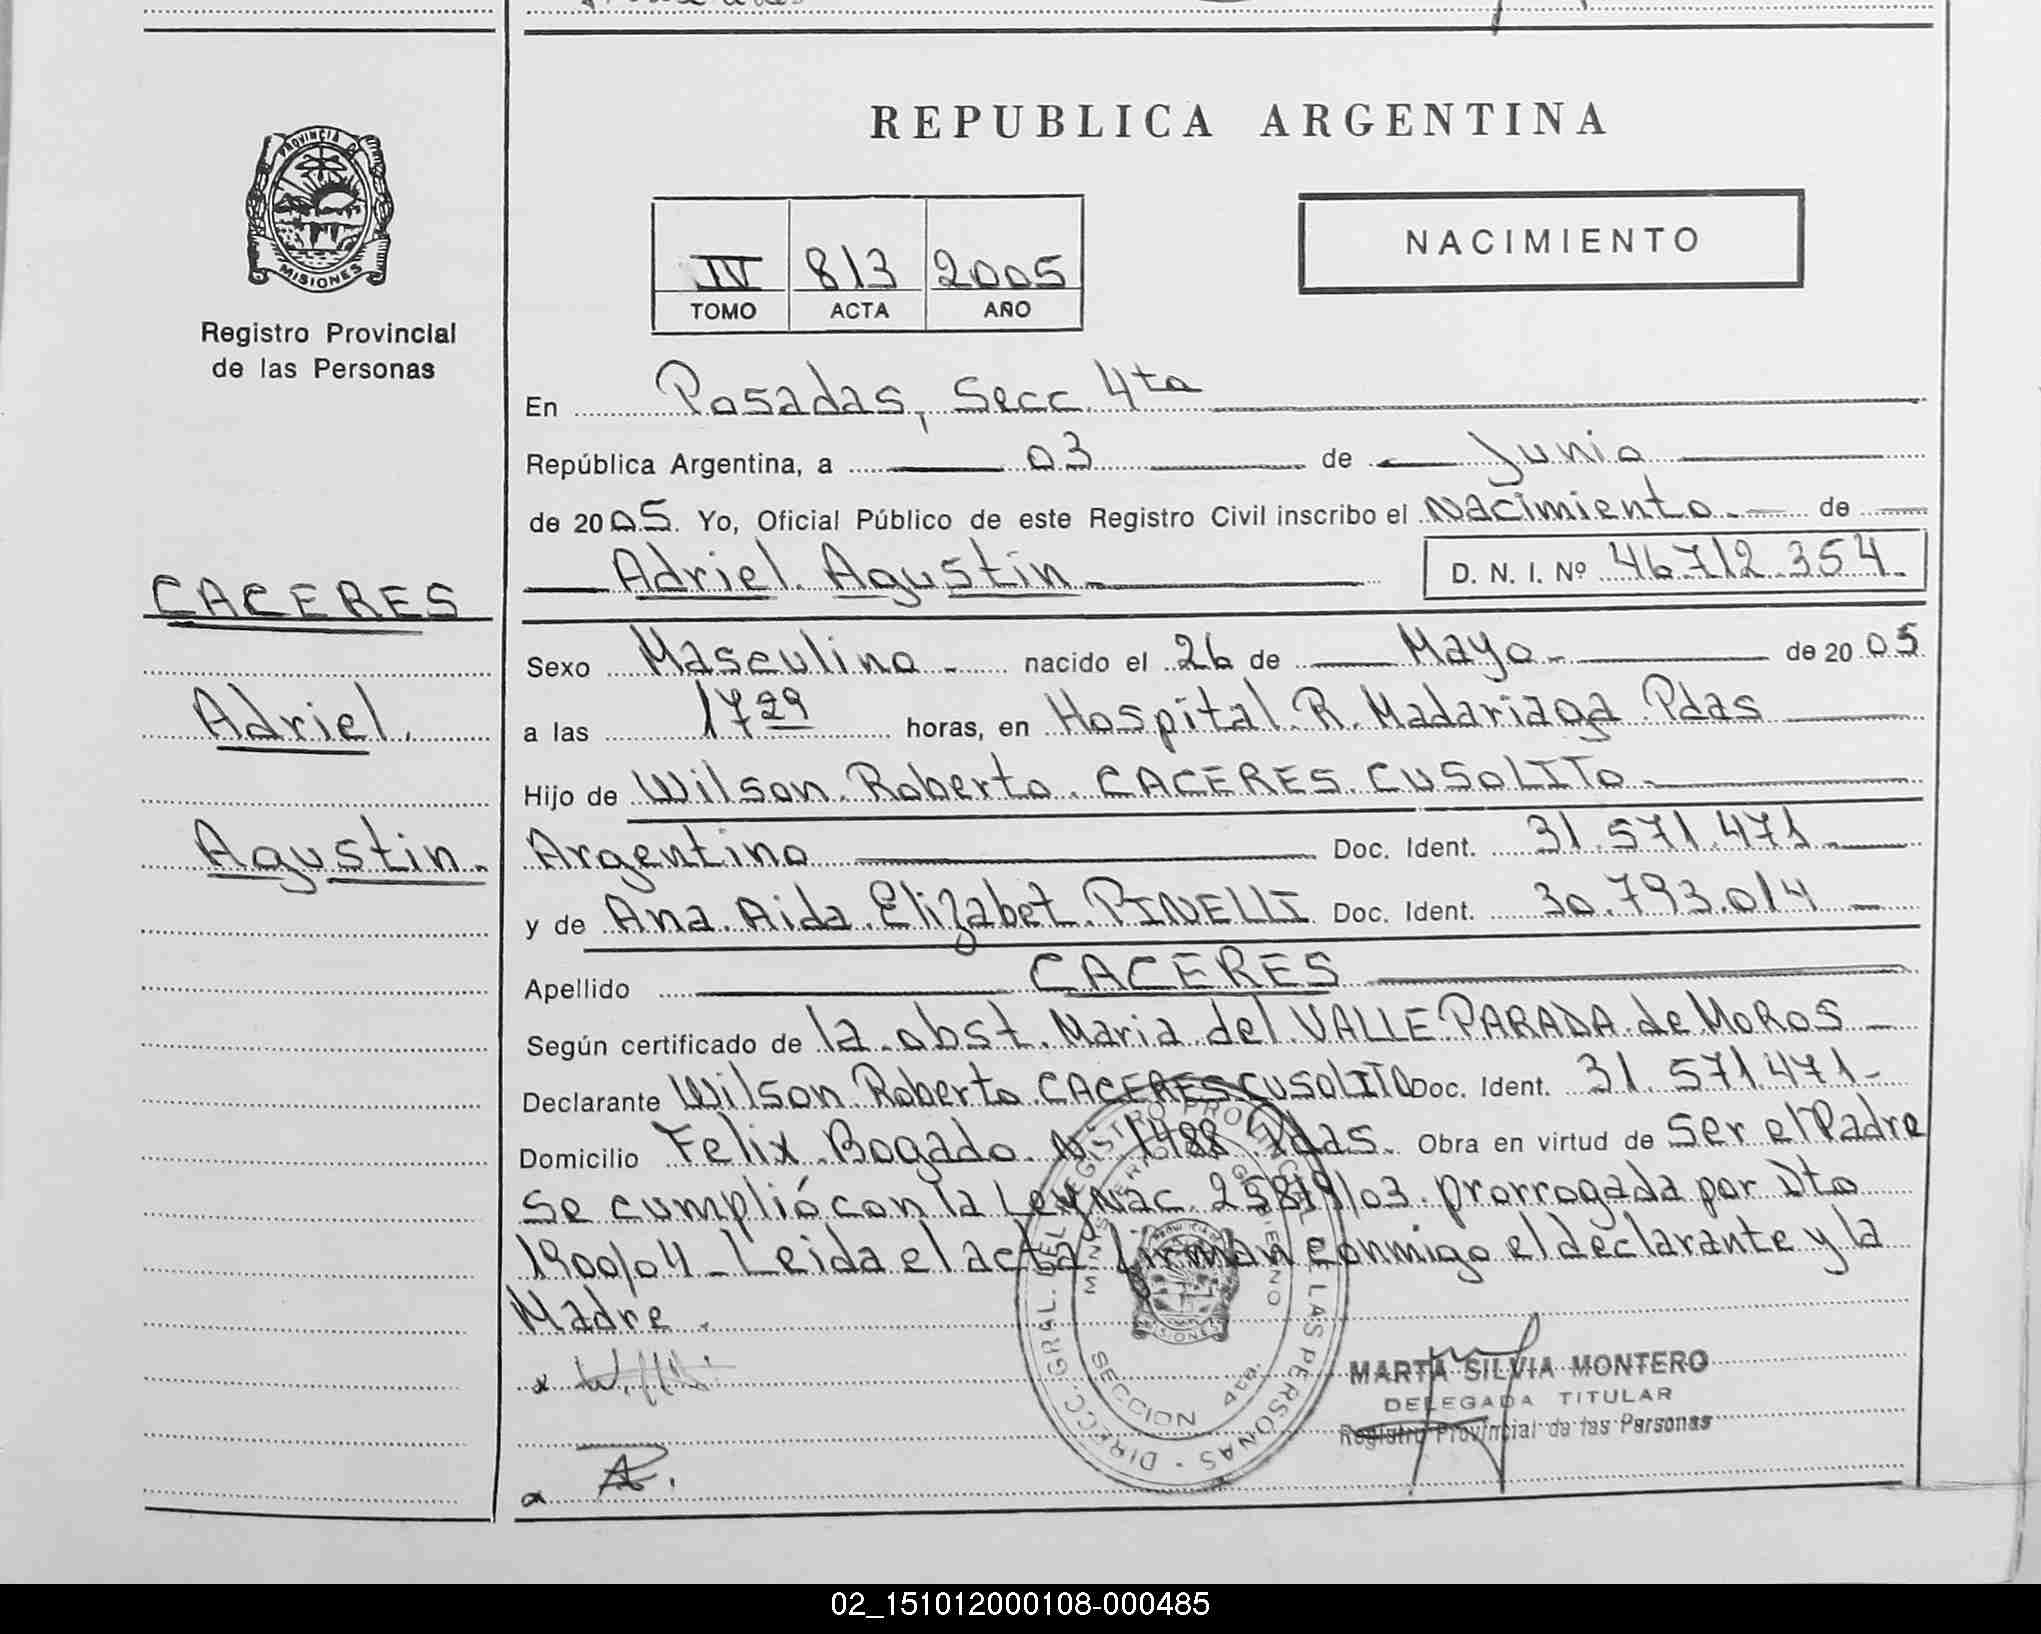 REPUBLICA ARGENTINA
PROVINCIA DE
MISIONES
Registro Provincial
de las Personas
NACIMIENTO
IV 813 2005
TOMO ACTA AÑO
En Posadas, Secc. 4ta
República Argentina, a 03 de Junio
de 2005. Yo, Oficial Público de este Registro Civil inscribo el Nacimiento de
Adriel Agustin D. N. I. Nº 46712.354
CACERES
Adriel
Agustin
Sexo Masculino nacido el 26 de Mayo de 2005
a las 1729 horas, en Hospital R. Madariaga Pdas
Hijo de Wilson Roberto CACERES CUSOLITO
Argentino Doc. Ident. 31.571.471
y de Ana Aida Elizabet PINELLI Doc. Ident. 30.793.014
Apellido CACERES
Según certificado de la obst. Maria del VALLE PARADA de MOROS
Declarante Wilson Roberto CACERES CUSOLITO Doc. Ident. 31.571.471
Domicilio Felix Bogado Nº 1488 Pdas. Obra en virtud de Ser el Padre
Se cumplió con la Ley Nac. 25819/03 prorrogada por Dto
1900/04 - Leida el acta firman conmigo el declarante y la
Madre.
DIRECC. GRAL. DEL REGISTRO PROVINCIAL DE LAS PERSONAS
MINISTERIO DE GOBIERNO
SECCION 4ta.
MARTA SILVIA MONTERO
DELEGADA TITULAR
Registro Provincial de las Personas
02_151012000108-000485